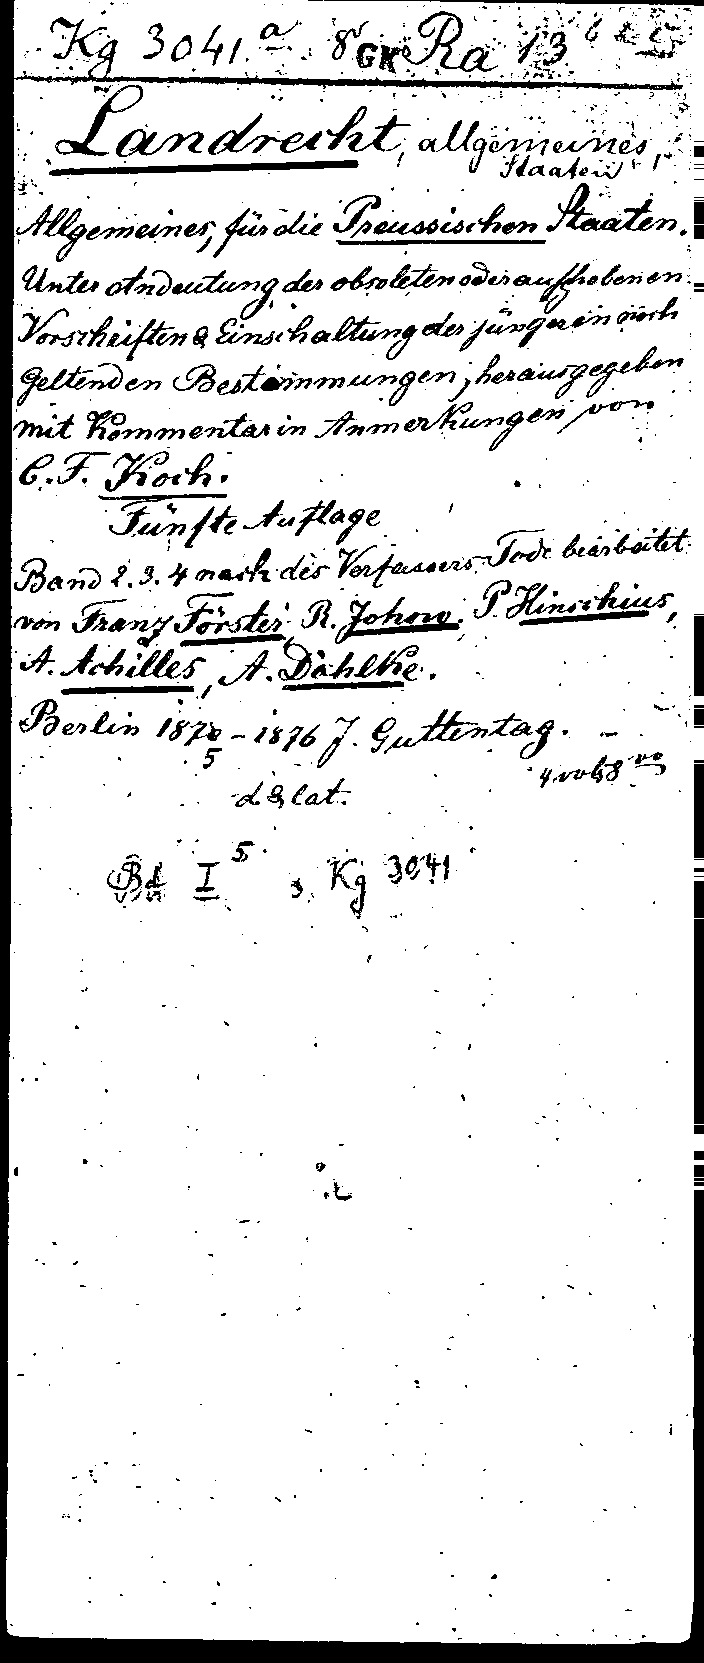 Kg 3041 a 8° GK Ra 13
Landrecht, allgemeines,
Staaten
Allgemeines, für die Preussischen Staaten.
Unter Andeutung der obsoleten oder aufgehobenen
Vorschriften & Einschaltung der jüngeren noch
geltenden Bestimmungen, herausgegeben
mit Kommentar in Anmerkungen von
C. F. Koch.
Fünfte Auflage
Band 2. 3. 4 nach des Verfassers Tode bearbeitet
von Franz Förster, R. Johow, P. Hinschius,
A. Achilles, A. Dahlke.
Berlin 1870 - 1876 J. Guttentag.
5
4 vol. 8 vo
d & lat.
Bd I 5 s. Kg 3041